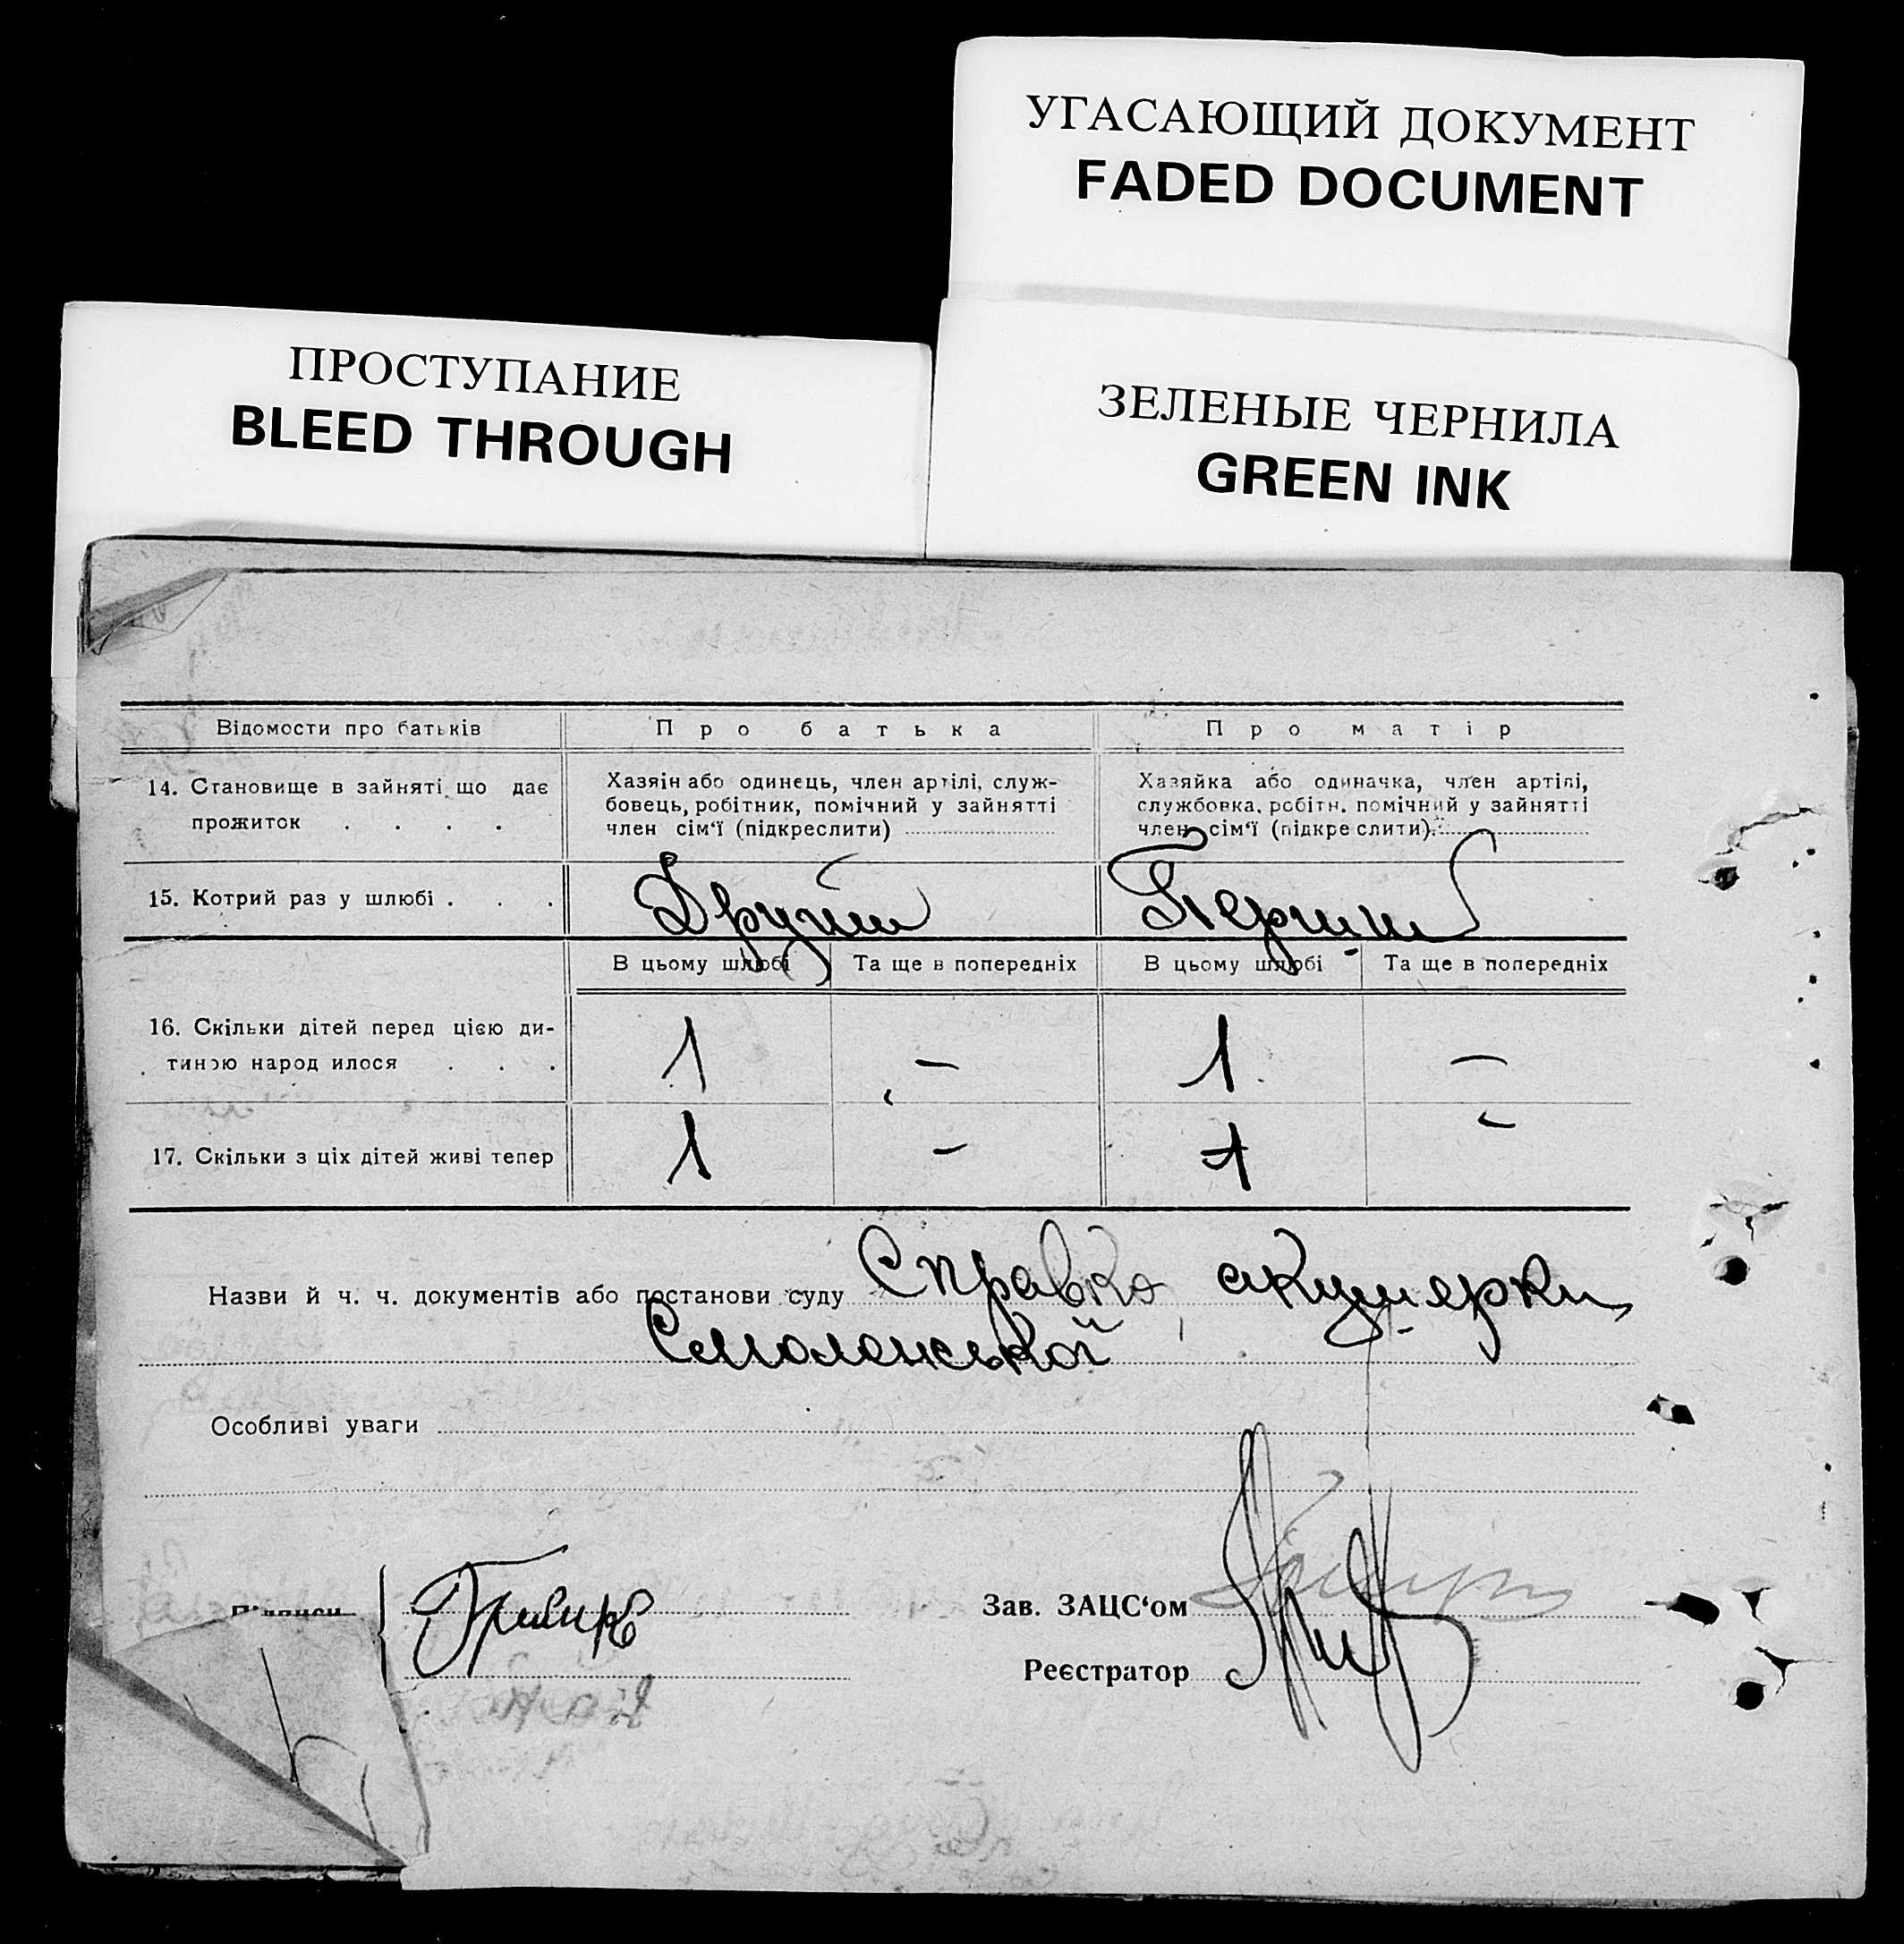 УГАСАЮЩИЙ ДОКУМЕНТ
FADED DOCUMENT
ПРОСТУПАНИЕ
BLEED THROUGH
ЗЕЛЕНЫЕ ЧЕРНИЛА
GREEN INK
Відомости про батьків
Про батька
Про матір
14. Становище в зайняті що дає
прожиток . . . .
Хазяін або одинець, член артілі, служ-
бовець, робітник, помічний у зайнятті
член сім'ї (підкреслити)
Хазяйка або одиначка, член артілі,
службовка. робітн. помічний у зайнятті
член сім'ї (підкреслити).
15. Котрий раз у шлюбі . . .
Другий
Перший
В цьому шлюбі
Та ще в попередніх
В цьому шлюбі
Та ще в попередніх
16. Скільки дітей перед цією ди-
тиною народилося . . .
1 — 1 —
17. Скільки з ціх дітей живі тепер
1 — 1 —
Назви й ч. ч. документів або постанови суду Справка акушерки
Смоленської
Особливі уваги
Підписи
Зав. ЗАЦС'ом
Реєстратор